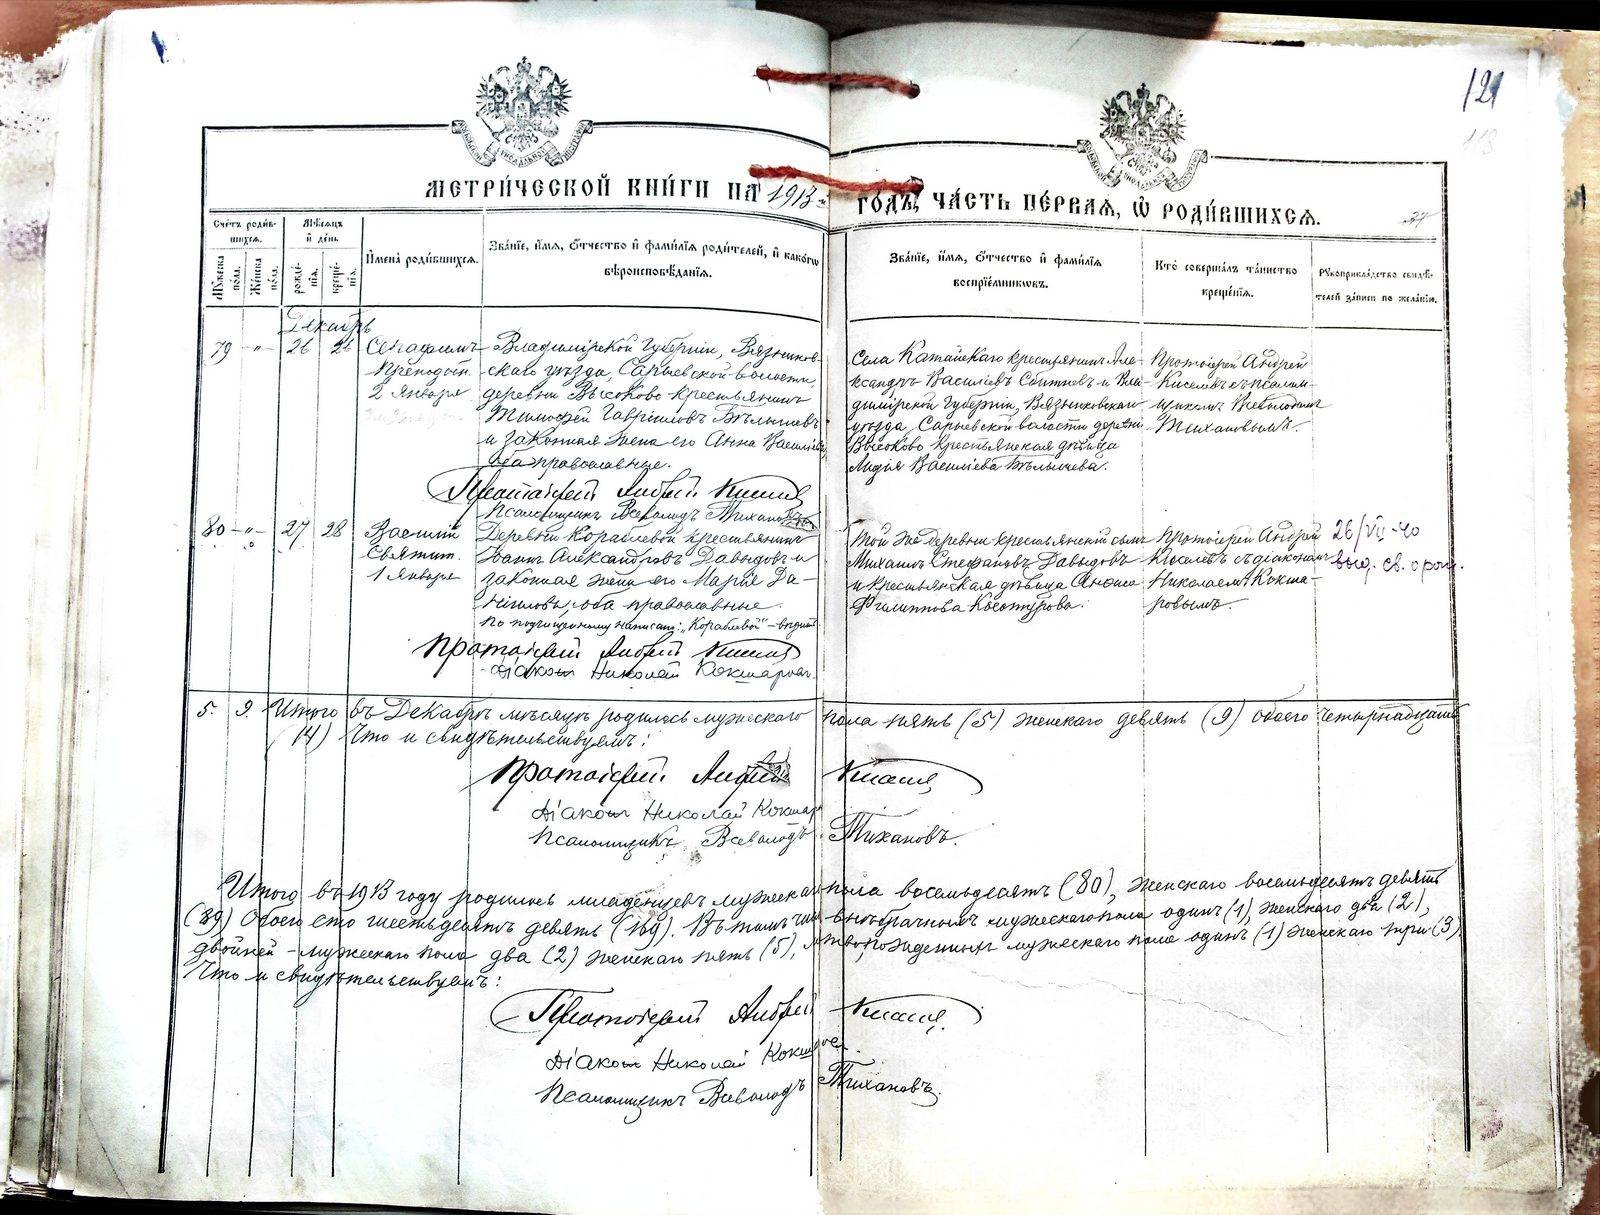 121
113
МЕТРИ́ЧЕСКОЙ КНИ́ГИ НА 1913 ГО́ДЪ, ЧА́СТЬ ПЕ́РВАЯ, Ѡ РОДИ́ВШИХСЯ.
37
Сче́тъ роди́в-
шихся.
Мѣ́сяцъ
и́ де́нь
Му́жеска
по́ла.
Же́нска
по́ла.
рожде́-
нія.
креще́-
нія.
И́мена̀ роди́вшихся.
Зва́ніе, и́мя, о́тчество и́ фами́лія роди́телей, и́ како́гѡ
вѣроисповѣ́данія.
Зва́ніе, и́мя, о́тчество и́ фами́лія
воспріе́мниковъ.
Кто̀ соверша́лъ та́инство
креще́нія.
Рукоприкла́дство свидѣ́-
телей за́писи по жела́нію.
Декабрь
79 —"— 26 26
Серафимъ
Преподобн.
2 Января
Владимірской Губерніи, Вязников-
скаго уѣзда, Сарыевской волости,
деревни Высоково крестьянинъ
Тимофей Гавріиловъ Бѣлышевъ
и законная жена его Анна Васильева,
оба православные.
Протоіерей Андрей Киселевъ
Псаломщикъ Всеволодъ Тихановъ
Села Катайскаго крестьянинъ Але-
ксандръ Васильевъ Сбитневъ и Вла-
димірской Губерніи, Вязниковскаго
уѣзда, Сарыевской волости деревни
Высоково крестьянская дѣвица
Лидія Васильева Бѣлышева.
Протоіерей Андрей
Киселевъ съ псалом-
щикомъ Всеволодомъ
Тихановымъ.
80 —"— 27 28
Василій
Святит.
1 Января
Деревни Кораблевой крестьянинъ
Іоаннъ Александровъ Давыдовъ и
законная жена его Марія Да-
ніилова, оба православные.
По подчищенному написано: "Кораблевой" —
Протоіерей Андрей Киселевъ
Діаконъ Николай Кокшаровъ.
Той же деревни крестьянскій сынъ
Михаилъ Стефановъ Давыдовъ
и крестьянская дѣвица
Филиппова
Протоіерей Андрей
Киселевъ съ діакономъ
Николаемъ Кокша-
ровымъ.
26/VII-40
выд. св. о рожд.
5. 9. Итого въ Декабрѣ мѣсяцѣ родилось мужескаго пола пять (5) женскаго девять (9) обоего четырнадцать
(14) Что и свидѣтельствуемъ:
Протоіерей Андрей Киселевъ
Діаконъ Николай Кокшаровъ
Псаломщикъ Всеволодъ Тихановъ.
Итого въ 1913 году родилось младенцевъ мужескаго пола восемьдесятъ (80), женскаго восемьдесятъ девять
(89) Обоего сто шестьдесятъ девять (169). Въ томъ числѣ внѣбрачныхъ мужескаго пола одинъ (1), женскаго два (2),
двойней – мужескаго пола два (2) женскаго пять (5), мертворожденныхъ мужескаго пола одинъ (1) женскаго три (3).
Что и свидѣтельствуемъ:
Протоіерей Андрей Киселевъ.
Діаконъ Николай Кокшаровъ.
Псаломщикъ Всеволодъ Тихановъ.